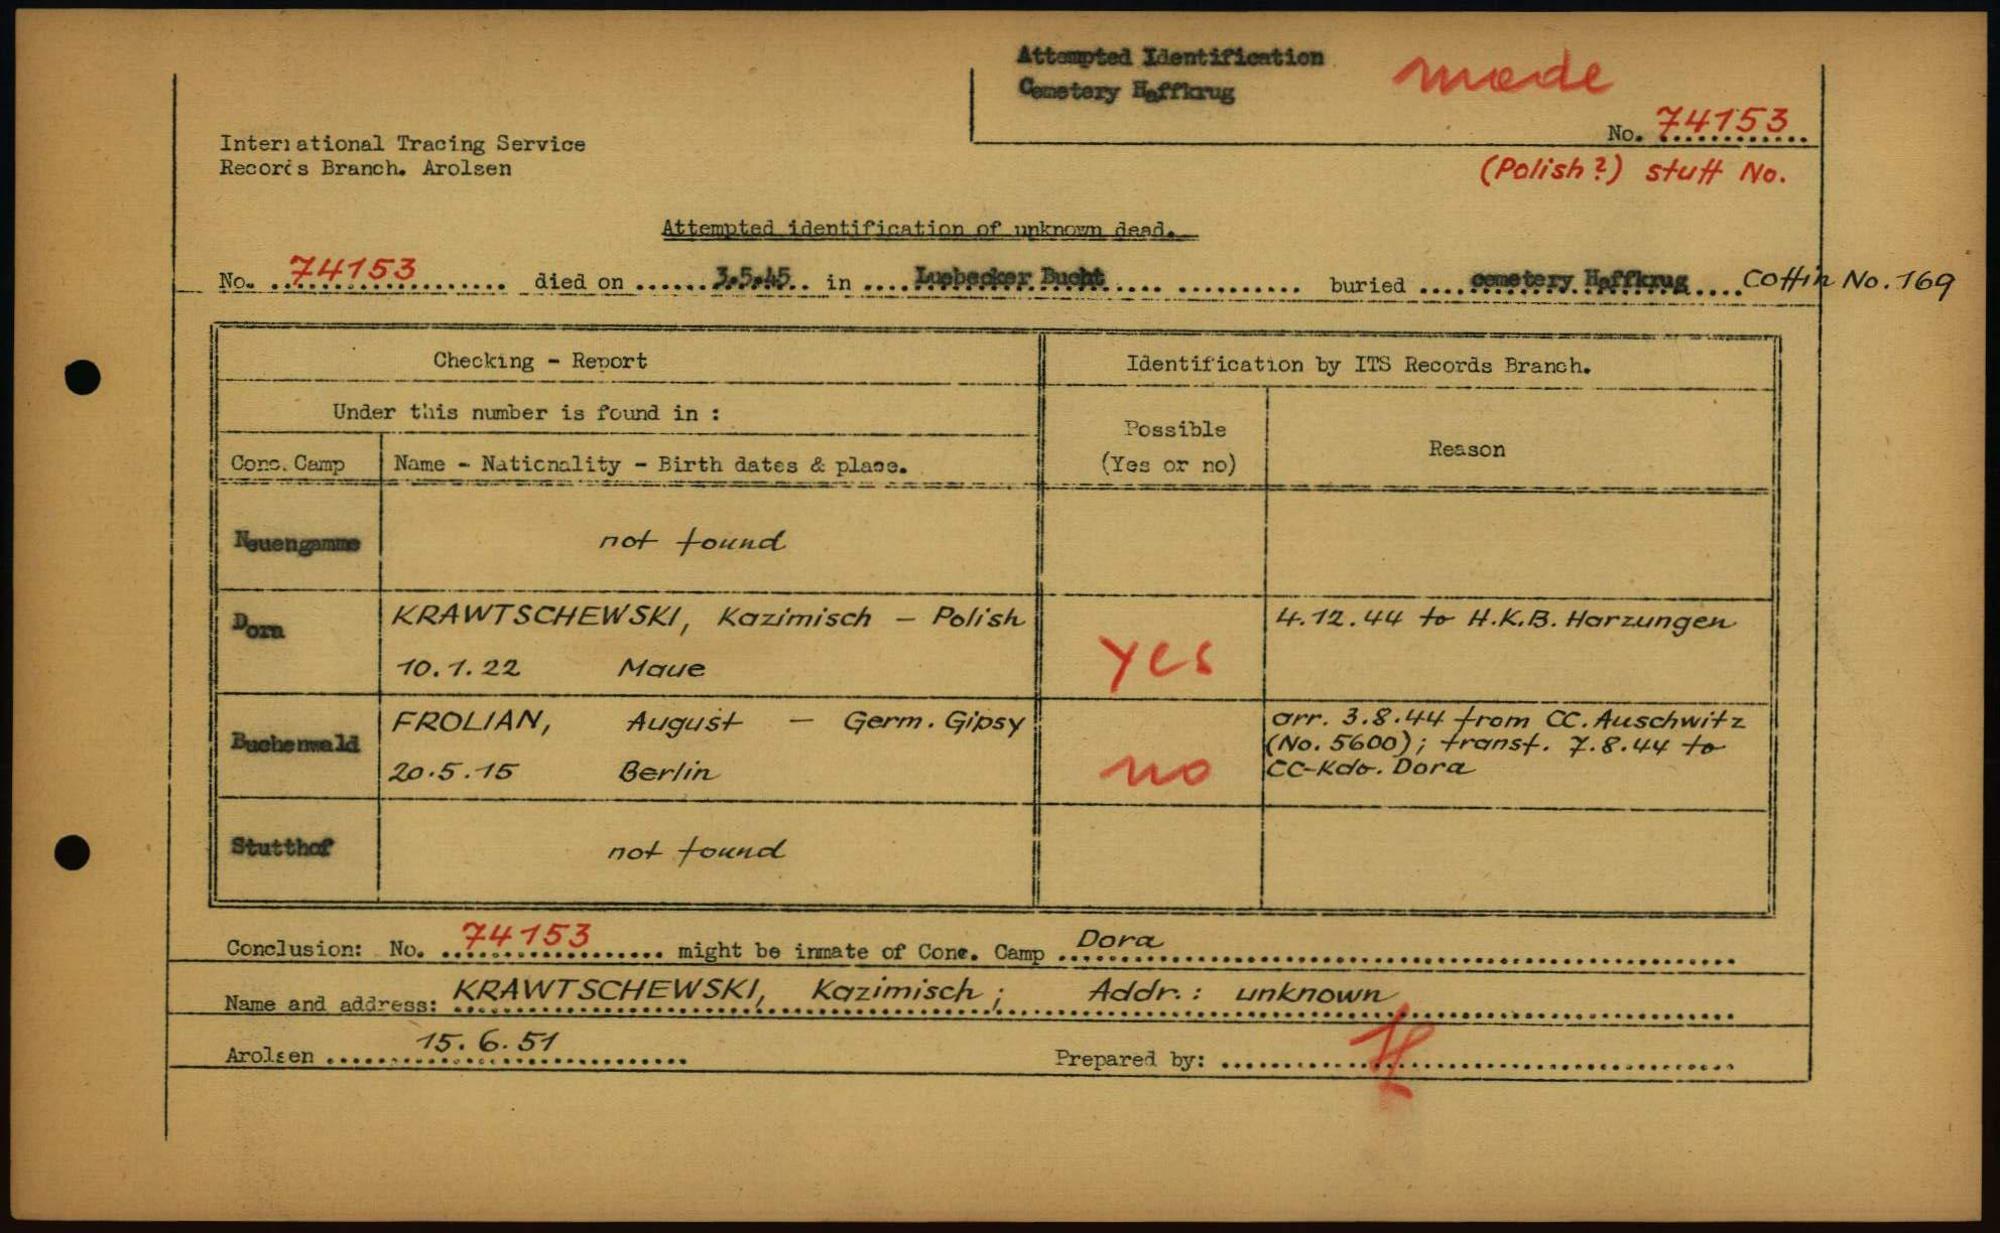 Attempted Identification
Cemetery Haffkrug
made
No. 74153
International Tracing Service
Records Branch. Arolsen
(Polish?) stuff No.
Attempted identification of unknown dead.
No. 74153 died on 3.5.45 in Luebecker Bucht buried cemetery Haffkrug Coffin No. 169
Checking - Report
Identification by ITS Records Branch.
Under this number is found in :
Possible
(Yes or no)
Reason
Conc. Camp
Name - Nationality - Birth dates & place.
Neuengamme
not found
Dora
KRAWTSCHEWSKI, Kazimisch - Polish
10.1.22 Maue
yes
4.12.44 to H.K.B. Harzungen
Buchenwald
FROLIAN, August - Germ. Gipsy
20.5.15 Berlin
no
arr. 3.8.44 from CC. Auschwitz
(No. 5600); transf. 7.8.44 to
CC-Kdo. Dora
Stutthof
not found
Conclusion: No. 74153 might be inmate of Conc. Camp Dora
Name and address: KRAWTSCHEWSKI, Kazimisch; Addr.: unknown
Arolsen 15.6.51
Prepared by: